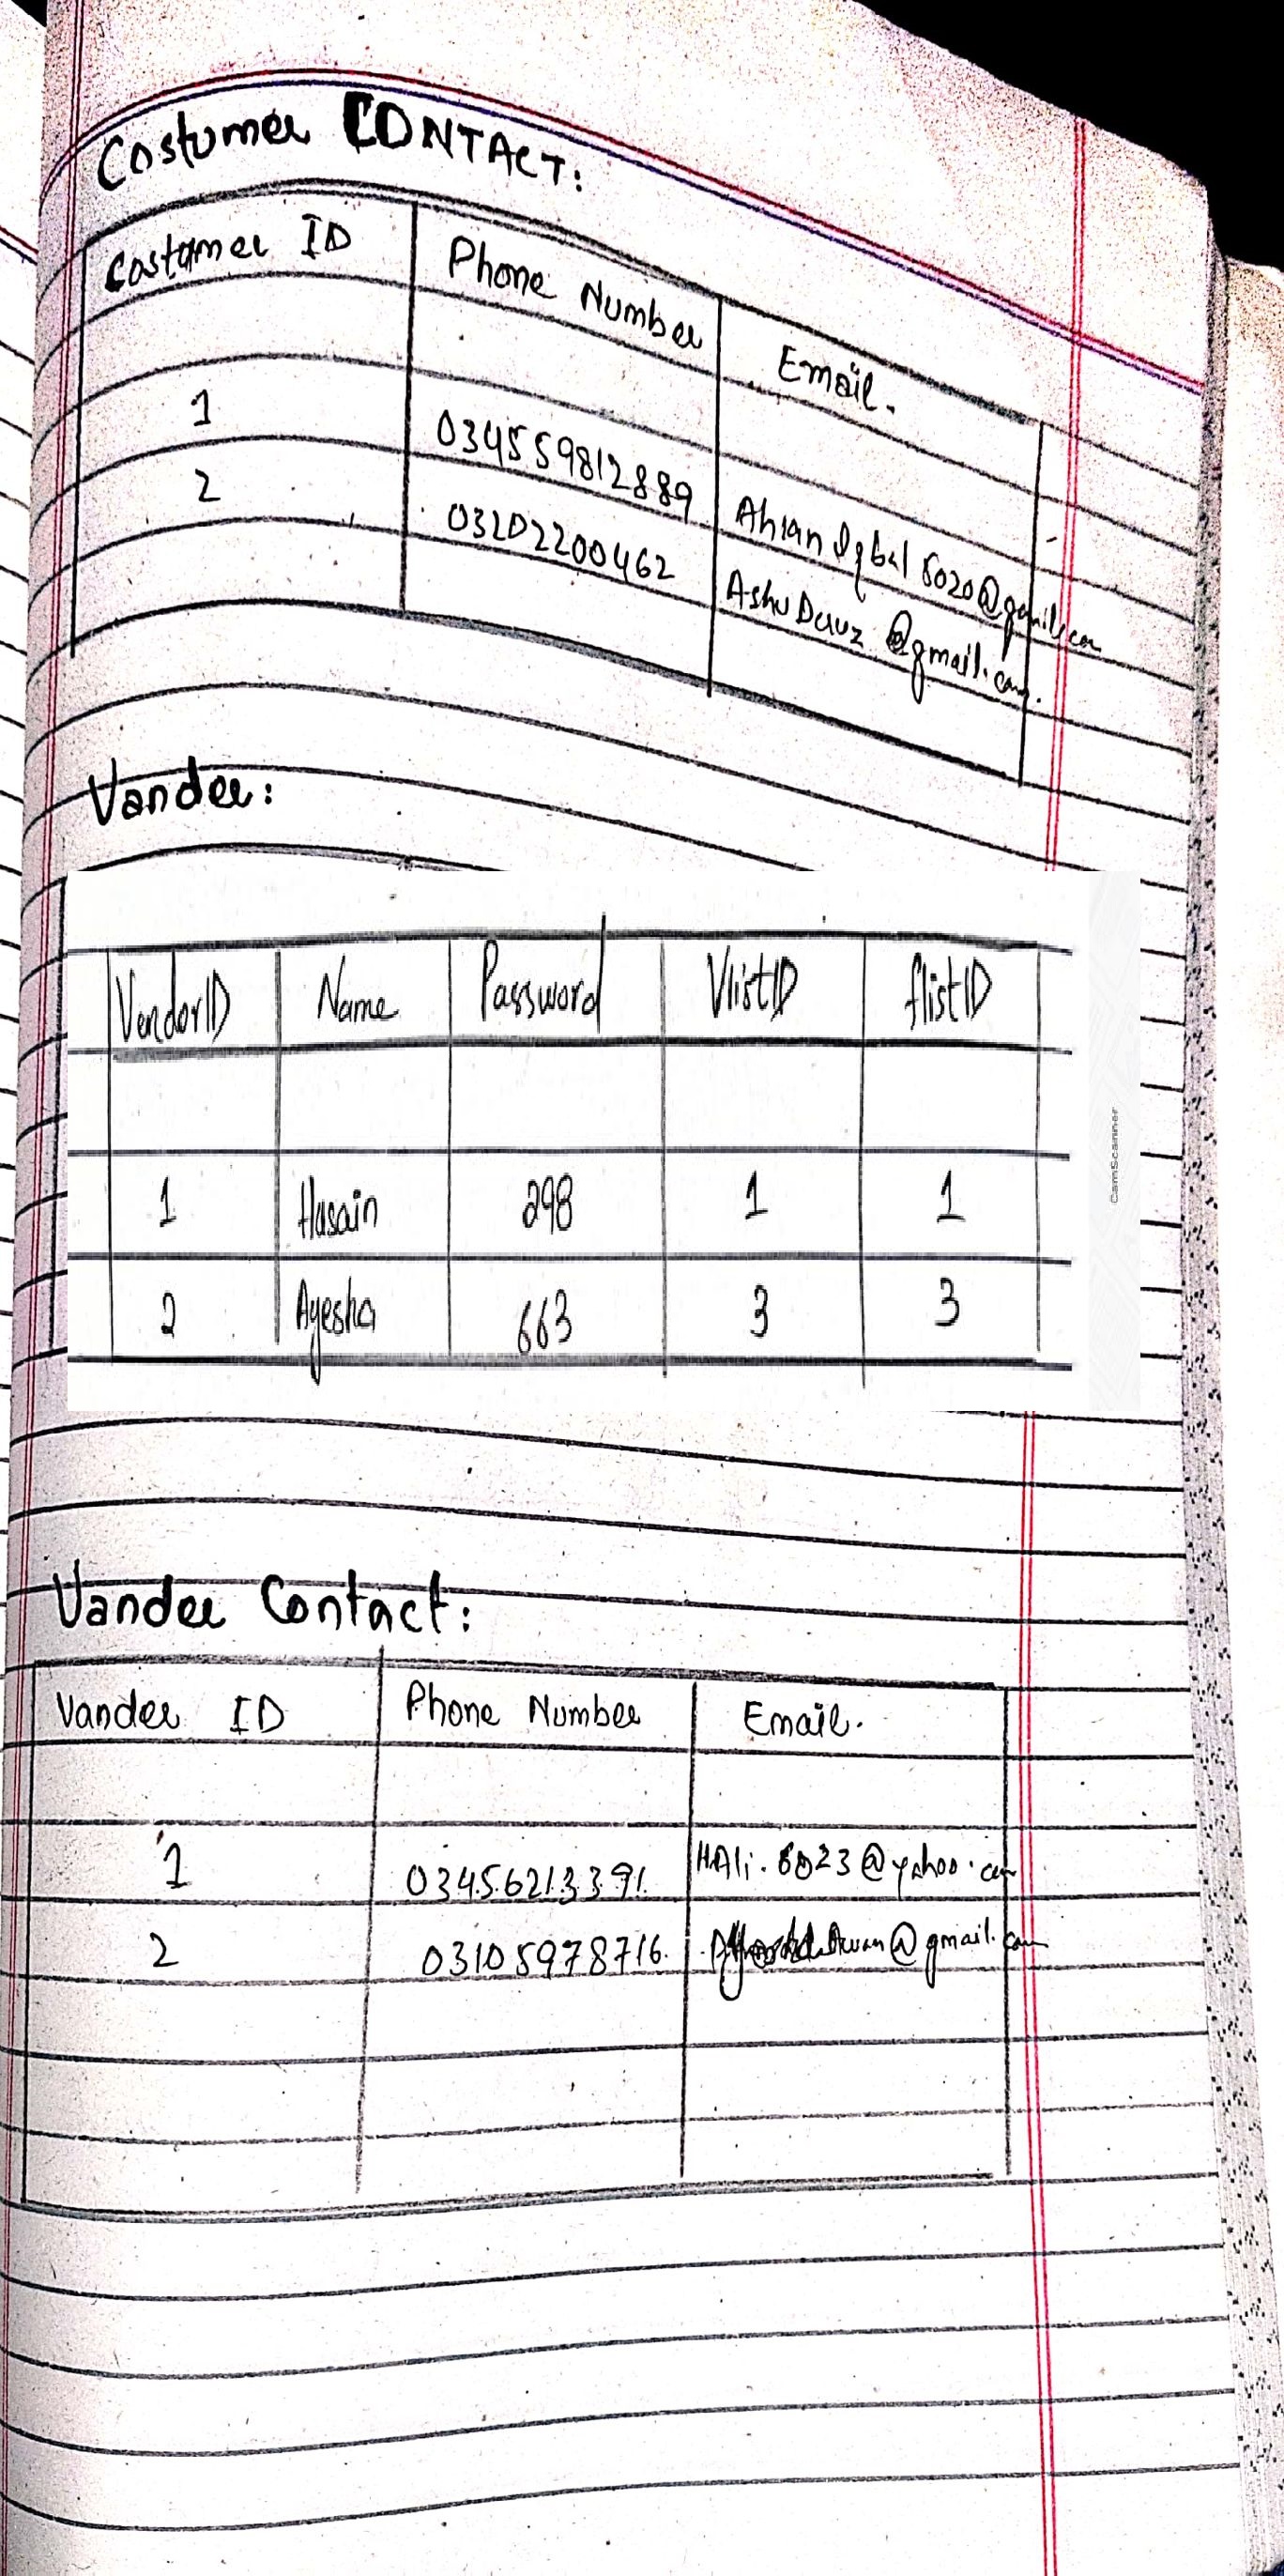 Costumer CONTACT:
Costumer ID Phone Number Email.
1 034559812889 Ahsan Iqbal 6020@gmail.com
2 03202200462 @gmail.com.
Vander:
VendorID Name Password VlistID flistID
1 Husain 298 1 1
2 Ayesha 663 3 3
CamScanner
Vander Contact:
Vander ID Phone Number Email.
1 03456213391 HAli.6023@yahoo.com
2 03105978716. @gmail.com